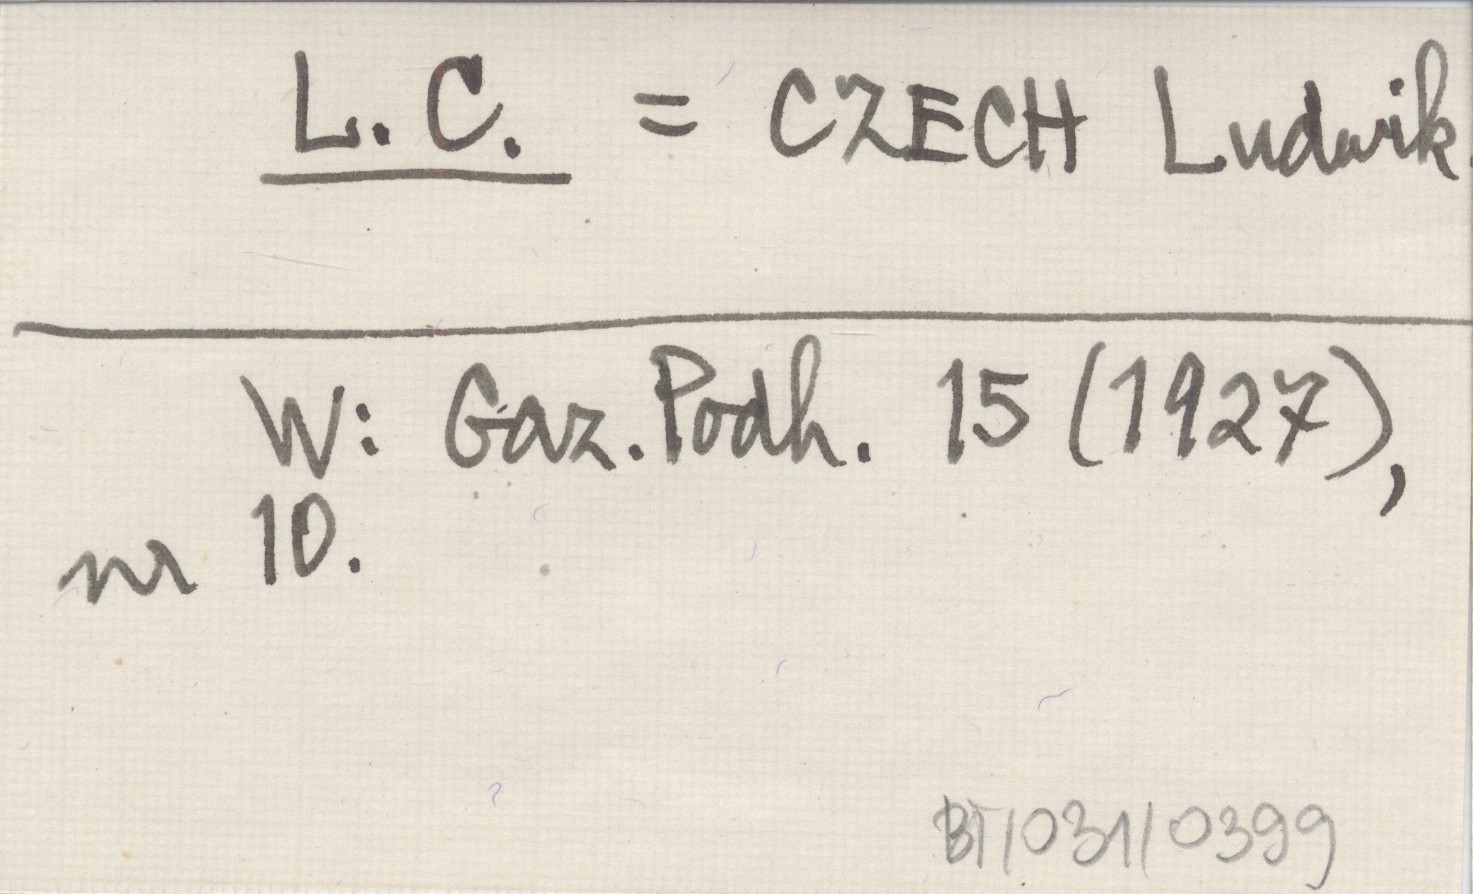 L. C. = CZECH Ludwik.
W: Gaz. Podh. 15 (1927),
nr 10.
BT/031/0399